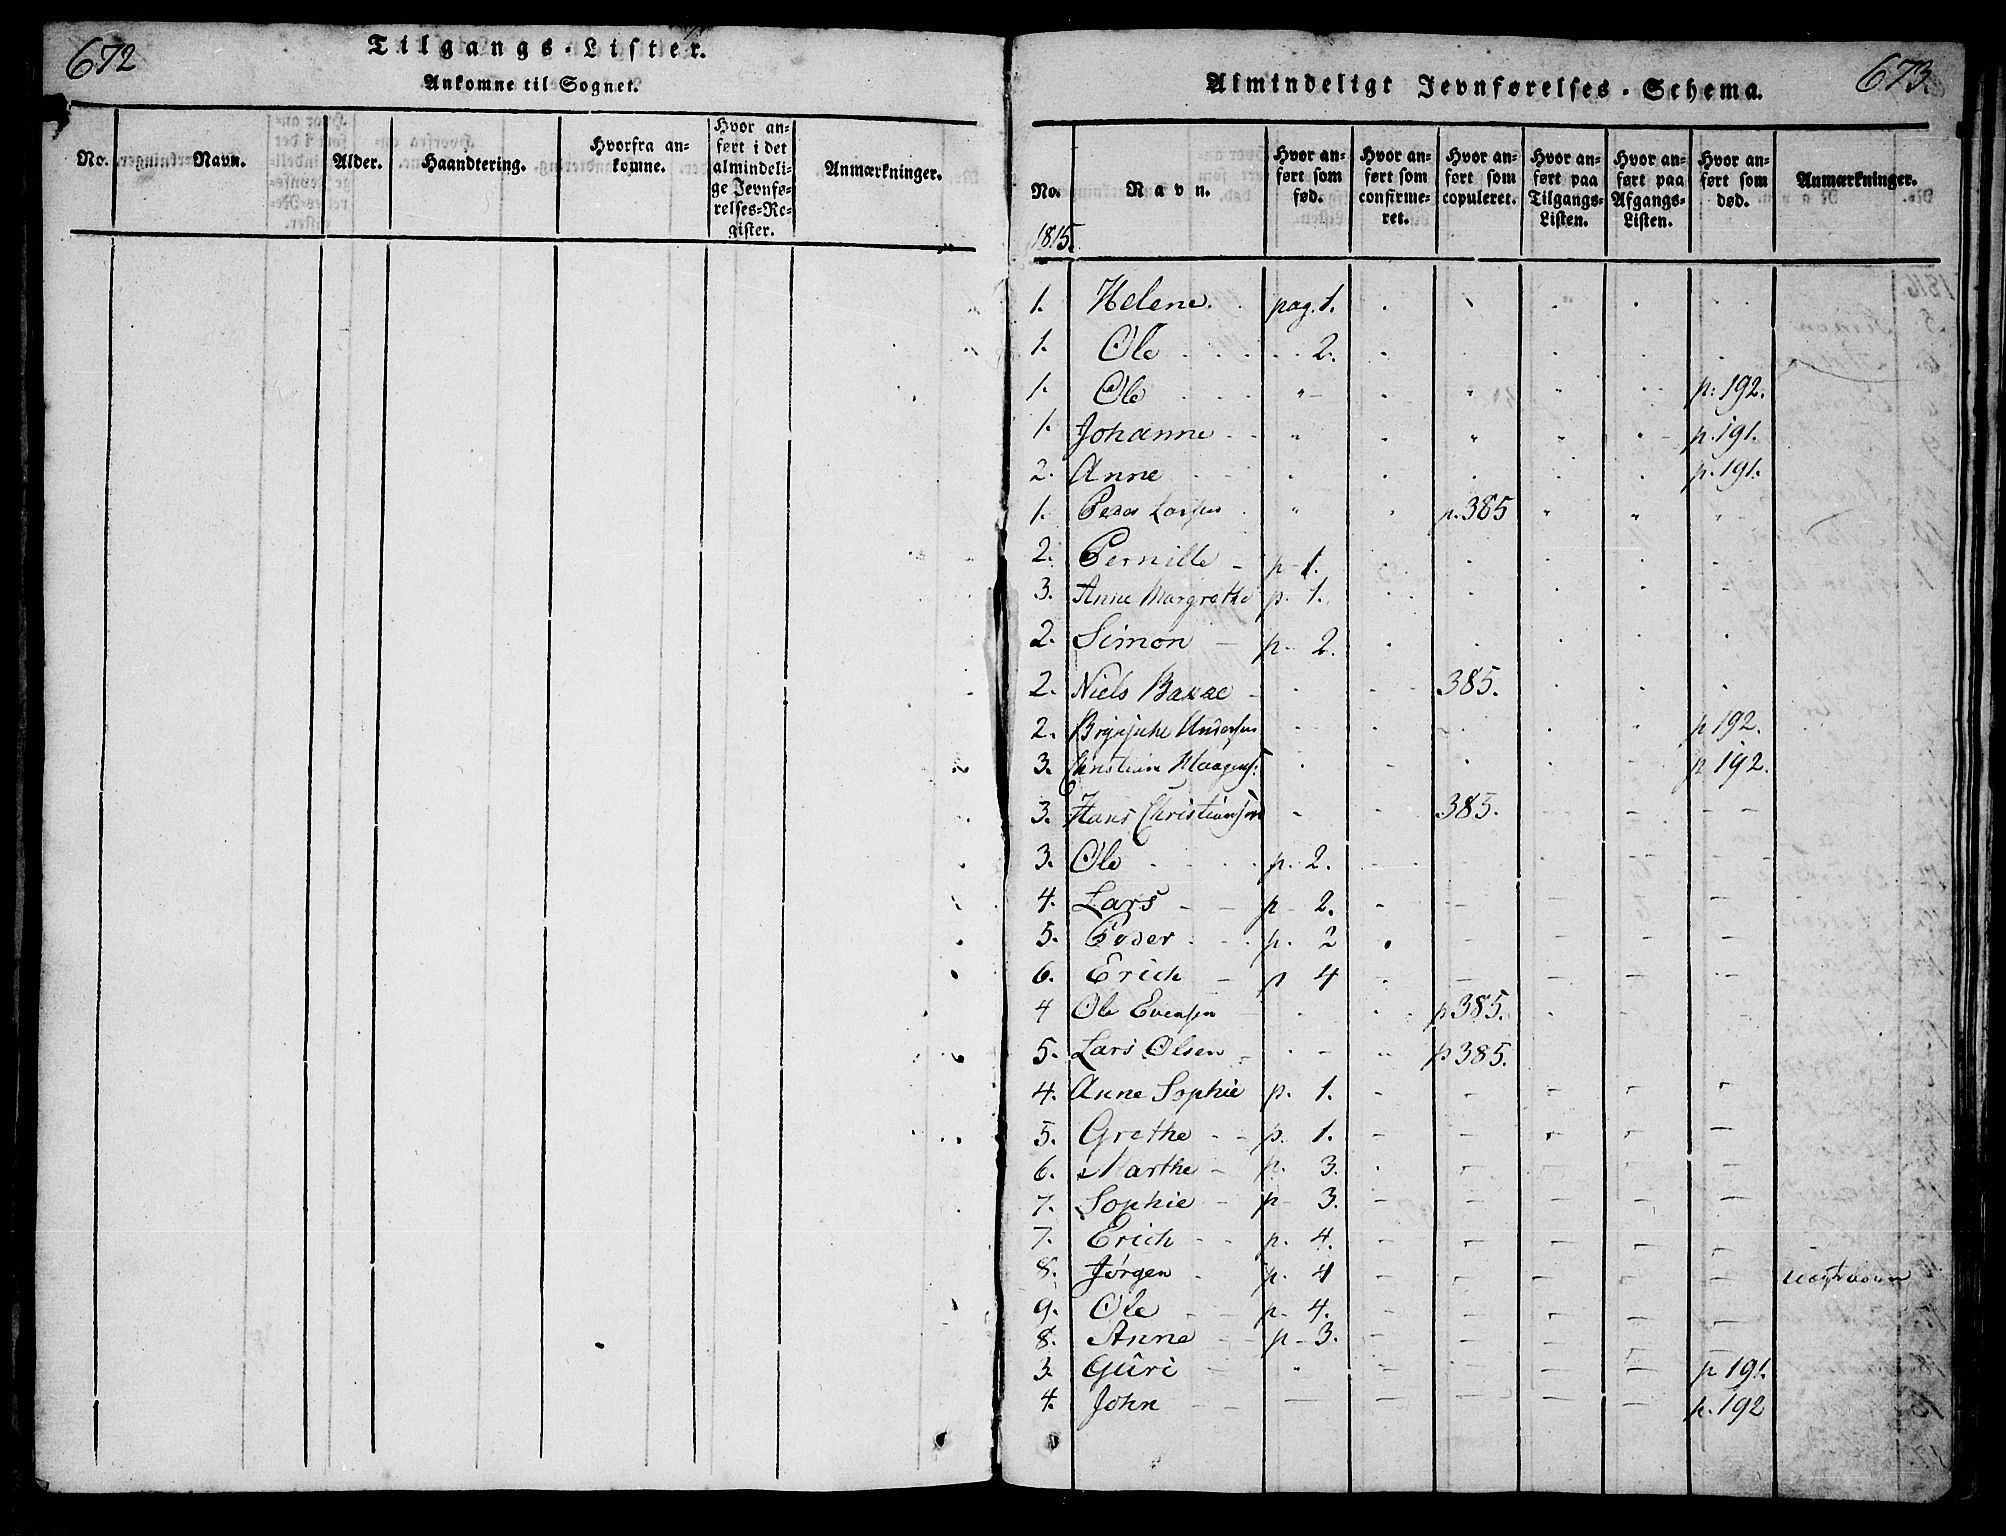 672
Tilgangs-Lister.
Ankomne til Sognet.
No.
Navn.
Alder.
Haandtering.
Hvorfra an-
komne.
Hvor an-
ført i det
almindeli-
ge Jevnfø-
relses-Re-
gister.
Anmærkninger.
673.
Almindeligt Jevnførelses-Schema.
No.
Navn.
Hvor an-
ført som
fød.
Hvor an-
ført som
confirme-
ret.
Hvor an-
ført som
copuleret.
Hvor an-
ført paa
Tilgangs-
Listen.
Hvor an-
ført paa
Afgangs-
Listen.
Hvor an-
ført som
død.
Anmærkninger.
1815.
1. Helene. pag. 1.
1. Ole 2.
1. Ole p: 192.
1. Johanne p. 191.
2. Anne p. 191.
1. Peder Larsen p. 385
2. Pernille p. 1.
3. Anne Margrethe p. 1.
2. Simon p. 2.
2. Niels 385.
2. Andersen p 192.
3. Christian p 192.
3. Hans Christiansen 385.
3. Ole p. 2.
4. Lars p. 2.
5. Peder p. 2
6. Erich p 4
4 Ole Evensen p 385.
5. Lars Olsen p 385.
4. Anne Sophie p. 1.
5. Grethe p. 1.
6. Marthe p. 3.
7. Sophie p. 3.
7. Erich p. 4.
8. Jørgen p. 4
9. Ole p. 4.
8. Anne p. 3.
3. Guri p 191.
4. John p. 192